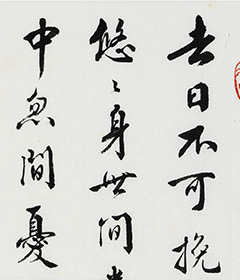 去日不可挽
悠〻身世间
中間憂